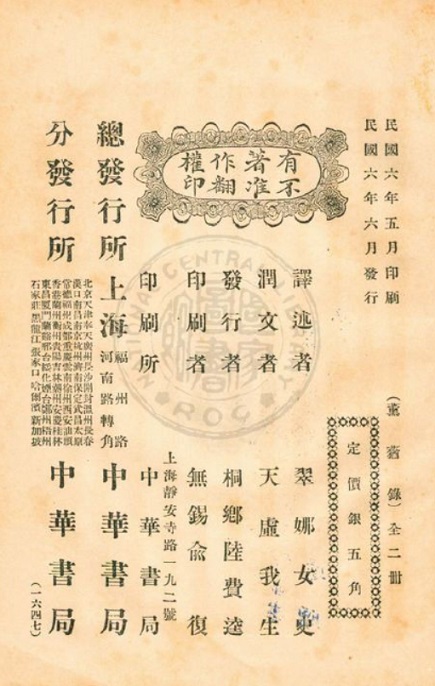 民國六年五月印刷
民國六年六月發行
（薰蕕錄）全二冊
定價銀五角
有著作權
不准翻印
譯述者 翠娜女史
潤文者 天虛我生
發行者 桐鄉陸費逵
印刷者 無錫俞復
印刷所 上海靜安寺路一九二號 中華書局
總發行所 上海 福州路河南路轉角 中華書局
分發行所 中華書局
北京天津奉天廣州長沙開封溫州長春
漢口南昌南京杭州濟南保定武昌太原
常德福州成都重慶雲南徐州西安汕頭
香港蘭州衡州貴陽吉林潮州安慶桂林
東昌廈門蘭谿邢台綏化煙台鄭州梧州
石家莊黑龍江張家口哈爾濱新加坡
（一六四七）
NATIONAL CENTRAL LIBRARY
ROC
國家圖書館